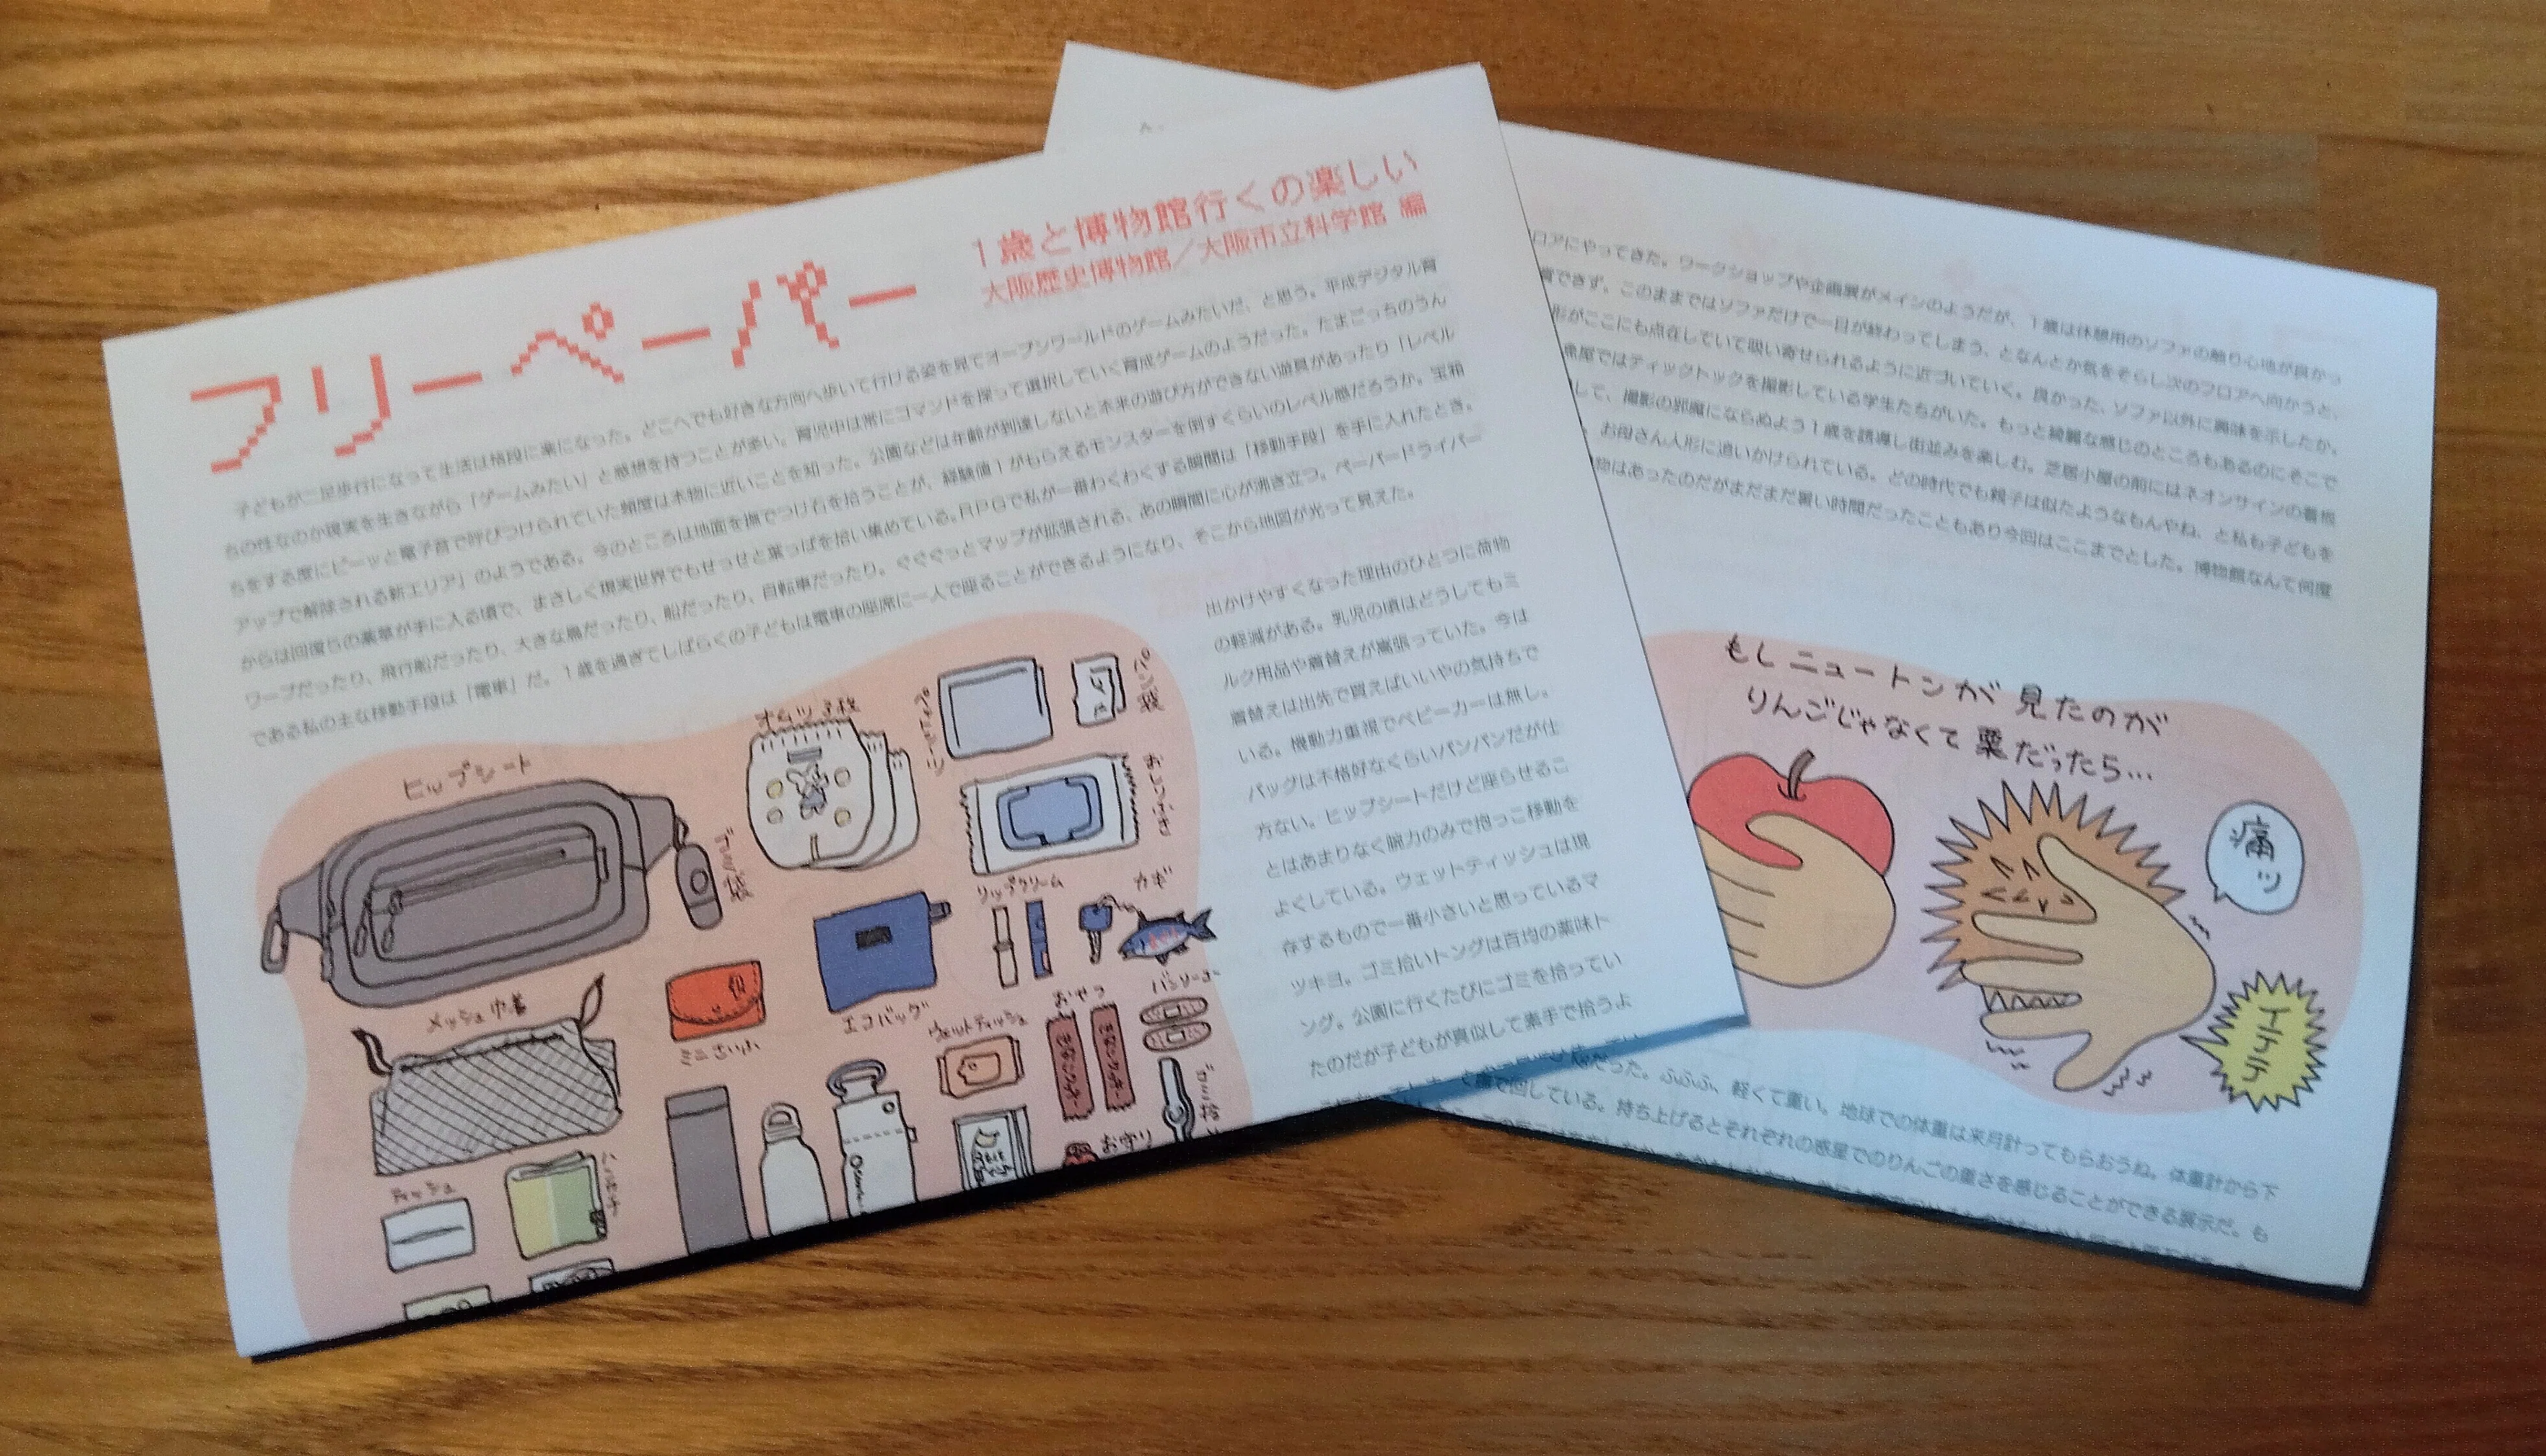 フリーペーパー
1歳と博物館行くの楽しい
大阪歴史博物館／大阪市立科学館 編
子どもが二足歩行になって生活は格段に楽になった。どこへでも好きな方向へ歩いて行ける姿を見てオープンワールドのゲームみたいだ、と思う。平成デジタル育
ちの性なのか現実を生きながら「ゲームみたい」と感想を持つことが多い。育児中は常にコマンドを探って選択していく育成ゲームのようだった。たまごっちのうん
ちをする度にピーッと電子音で呼びつけられていた頻度は本物に近いことを知った。公園などは年齢が到達しないと本来の遊び方ができない遊具があったり「レベル
アップで解除される新エリア」のようである。今のところは地面を撫でつけ石を拾うことが、経験値1がもらえるモンスターを倒すくらいのレベル感だろうか。宝箱
からは回復らの薬草が手に入る頃で、まさしく現実世界でもせっせと葉っぱを拾い集めている。RPGで私が一番わくわくする瞬間は「移動手段」を手に入れたとき。
ワープだったり、飛行船だったり、大きな鳥だったり、船だったり、自転車だったり。ぐぐぐっとマップが拡張される、あの瞬間に心が沸き立つ。ペーパードライバー
である私の主な移動手段は「電車」だ。1歳を過ぎてしばらくの子どもは電車の座席に一人で座ることができるようになり、そこから地図が光って見えた。
出かけやすくなった理由のひとつに荷物
の軽減がある。乳児の頃はどうしてもミ
ルク用品や着替えが嵩張っていた。今は
着替えは出先で買えばいいやの気持ちで
いる。機動力重視でベビーカーは無し。
バッグは不格好なくらいパンパンだが仕
方ない。ヒップシートだけど座らせるこ
とはあまりなく腕力のみで抱っこ移動を
よくしている。ウェットティッシュは現
存するもので一番小さいと思っているマ
ツキヨ。ゴミ拾いトングは百均の薬味ト
ング。公園に行くたびにゴミを拾ってい
たのだが子どもが真似して素手で拾うよ
ヒップシート
ゴミ袋
オムツ3枚
ペットシーツ
パン袋
おしりふき
リップクリーム
カギ
メッシュ巾着
ミニさいふ
エコバッグ
ウェットティッシュ
おやつ
バンソーコー
お守り
ティッシュ
ロアにやってきた。ワークショップや企画展がメインのようだが、1歳は休憩用のソファの触り心地が良かっ
賞できず。このままではソファだけで一日が終わってしまう、となんとか気をそらし次のフロアへ向かうと、
形がここにも点在していて吸い寄せられるように近づいていく。良かった、ソファ以外に興味を示したか。
魚屋ではティックトックを撮影している学生たちがいた。もっと綺麗な感じのところもあるのにそこで
して、撮影の邪魔にならぬよう1歳を誘導し街並みを楽しむ。芝居小屋の前にはネオンサインの看板
お母さん人形に追いかけられている。どの時代でも親子は似たようなもんやね、と私も子どもを
物はあったのだがまだまだ暑い時間だったこともあり今回はここまでとした。博物館なんて何度
もしニュートンが見たのが
りんごじゃなくて栗だったら…
痛ッ
イテテ
だった。ふふふ、軽くて重い。地球での体重は来月計ってもらおうね。体重計から下
で回している。持ち上げるとそれぞれの惑星でのりんごの重さを感じることができる展示だ。も